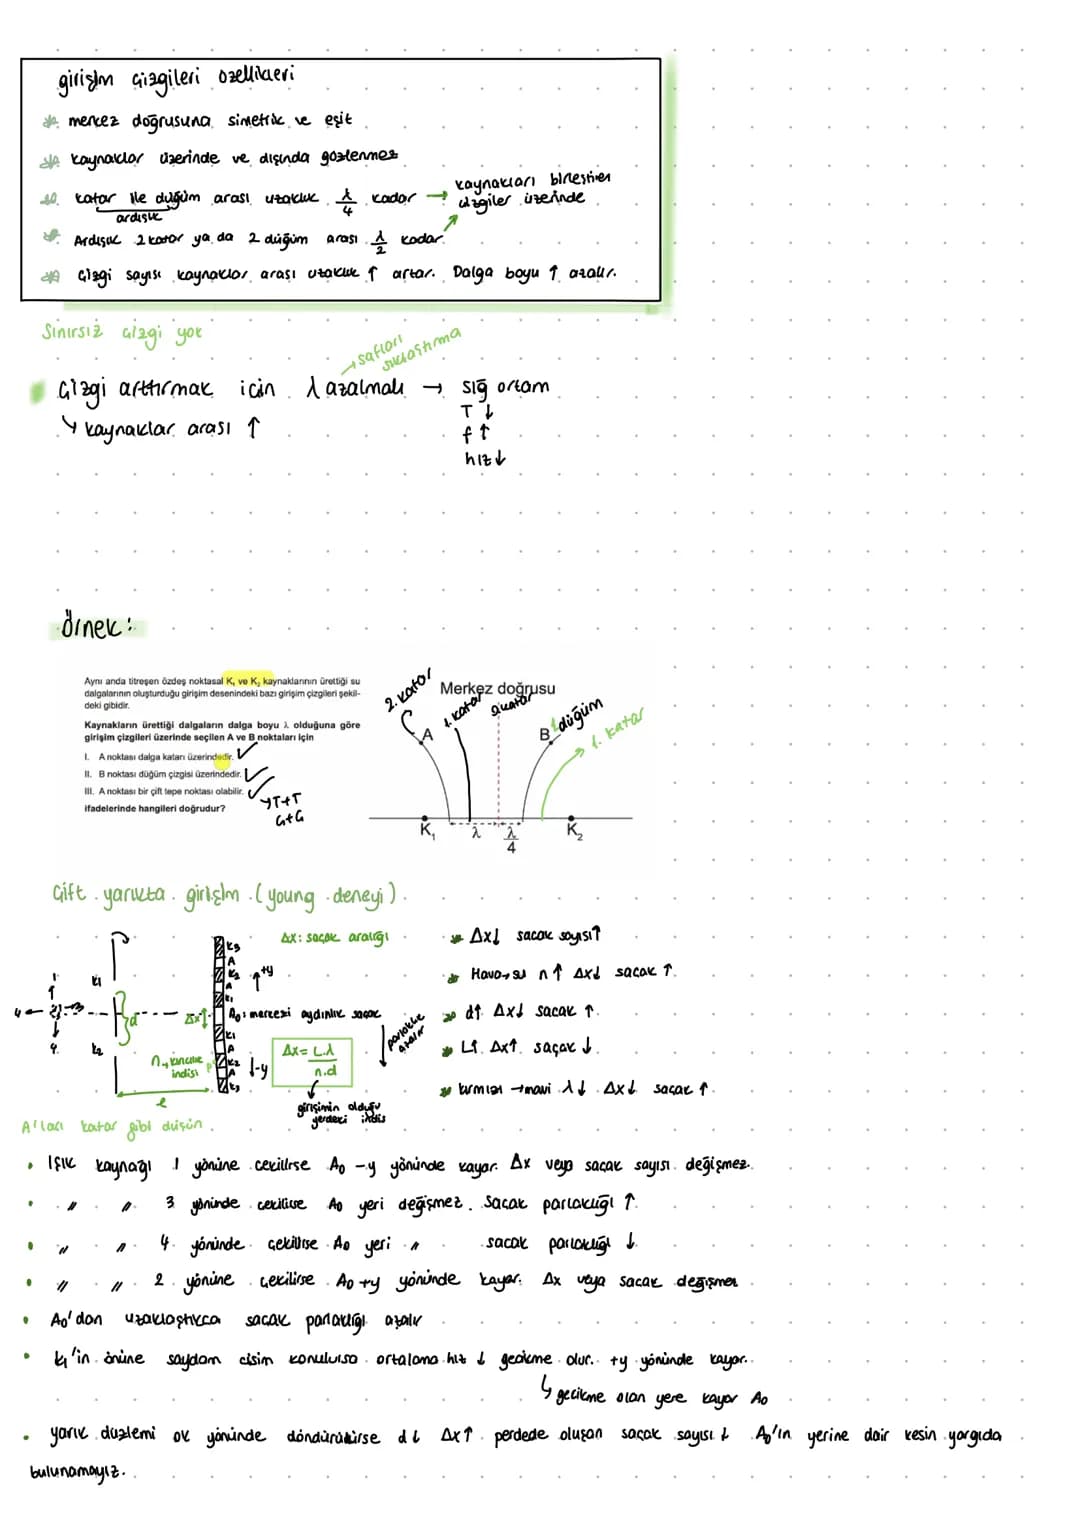 girişim çizgileri özellikleri
merkez doğrusuna simetrik ve eşit
kaynaklar üzerinde ve dışında gözlenmez
katar ile düğüm arası uzaklık λ/4 kadar → kaynakları birleştiren çizgiler üzerinde
ardışık
Ardışık 2 katar ya da 2 düğüm arası λ/2 kadar.
Çizgi sayısı kaynaklar arası uzaklık ↑ artar. Dalga boyu ↑ azalır.
Sınırsız çizgi yok
→ safları sıklaştırma
Çizgi arttırmak için λ azalmalı → sığ ortam
T ↓
↳ kaynaklar arası ↑
f ↑
hız ↓
örnek:
Aynı anda titreşen özdeş noktasal K₁ ve K₂ kaynaklarının ürettiği su
dalgalarının oluşturduğu girişim desenindeki bazı girişim çizgileri şekil-
deki gibidir.
Kaynakların ürettiği dalgaların dalga boyu λ olduğuna göre
girişim çizgileri üzerinde seçilen A ve B noktaları için
I. A noktası dalga katarı üzerindedir. ✓
II. B noktası düğüm çizgisi üzerindedir. ✓
III. A noktası bir çift tepe noktası olabilir. ✓
→ T+T
Ç+Ç
ifadelerinde hangileri doğrudur?
2. katar
Merkez doğrusu
1. katar
düğüm
1. katar
A
B
K₁
λ
λ/4
K₂
Çift yarıkta girişim (young deneyi)
Δx: saçak aralığı
K3
A
K2
A
K1
A₀: merkezi aydınlık saçak
K1
A
K2
A
K3
+y
-y
k1
k2
d
Δx
n → kırıcılık indisi
l
parlaklık azalır
Δx = L.λ / n.d
girişimin olduğu yerdeki indis
Δx↓ saçak sayısı↑
Hava → su n↑ Δx↓ saçak ↑.
d↑ Δx↓ saçak ↑.
L↑ Δx↑ saçak ↓
kırmızı → mavi λ↓ Δx↓ saçak ↑.
A'ları katar gibi düşün.
• Işık kaynağı 1 yönüne çekilirse A₀ -y yönünde kayar. Δx veya saçak sayısı değişmez.
• " " 3 yönünde çekilirse A₀ yeri değişmez. Saçak parlaklığı ↑.
• " " 4. yönünde çekilirse A₀ yeri " saçak parlaklığı ↓.
• " " 2. yönüne çekilirse A₀ +y yönünde kayar. Δx veya saçak değişmez
• A₀'dan uzaklaştıkca saçak parlaklığı azalır
• k₁'in önüne saydam cisim konulursa ortalama hız ↓ gecikme olur. +y yönünde kayar.
↳ gecikme olan yere kayar A₀
• yarık düzlemi ok yönünde döndürülürse d↓ Δx↑ perdede oluşan saçak sayısı ↓ A₀'ın yerine dair kesin yargıda
bulunamayız.